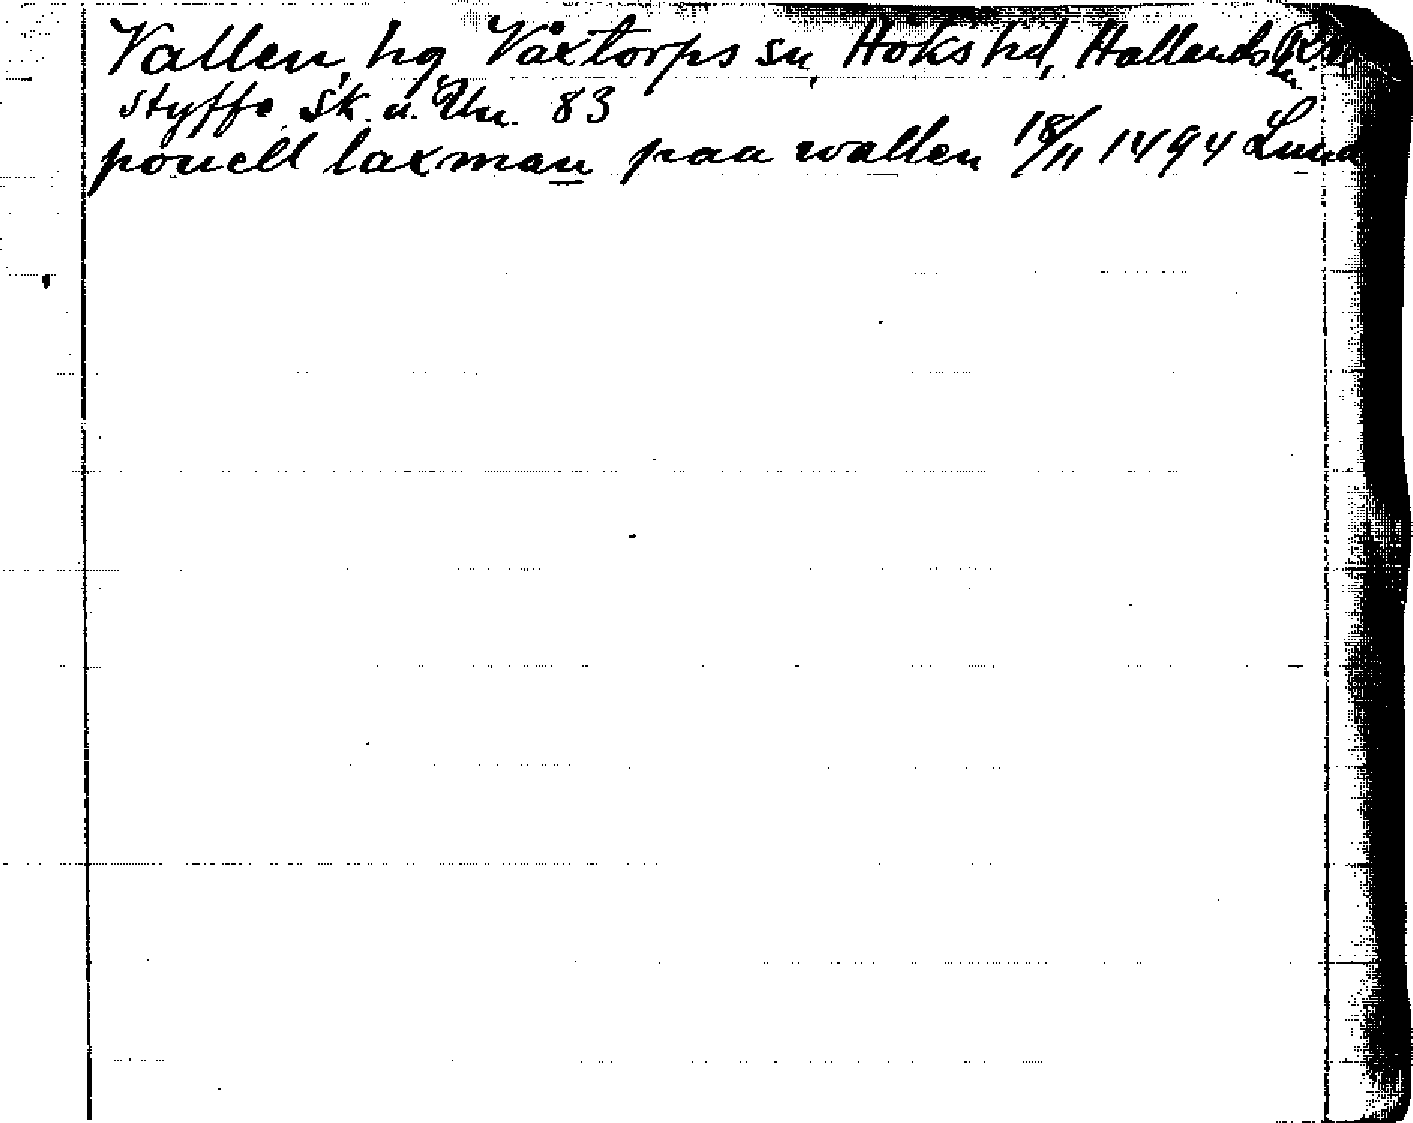 Vallen, hg, Våxtorps sn, Höks hd, Hallands
Styffe Sk. u. Un. 83
pouell laxman paa wallen 18/11 1494 Lund